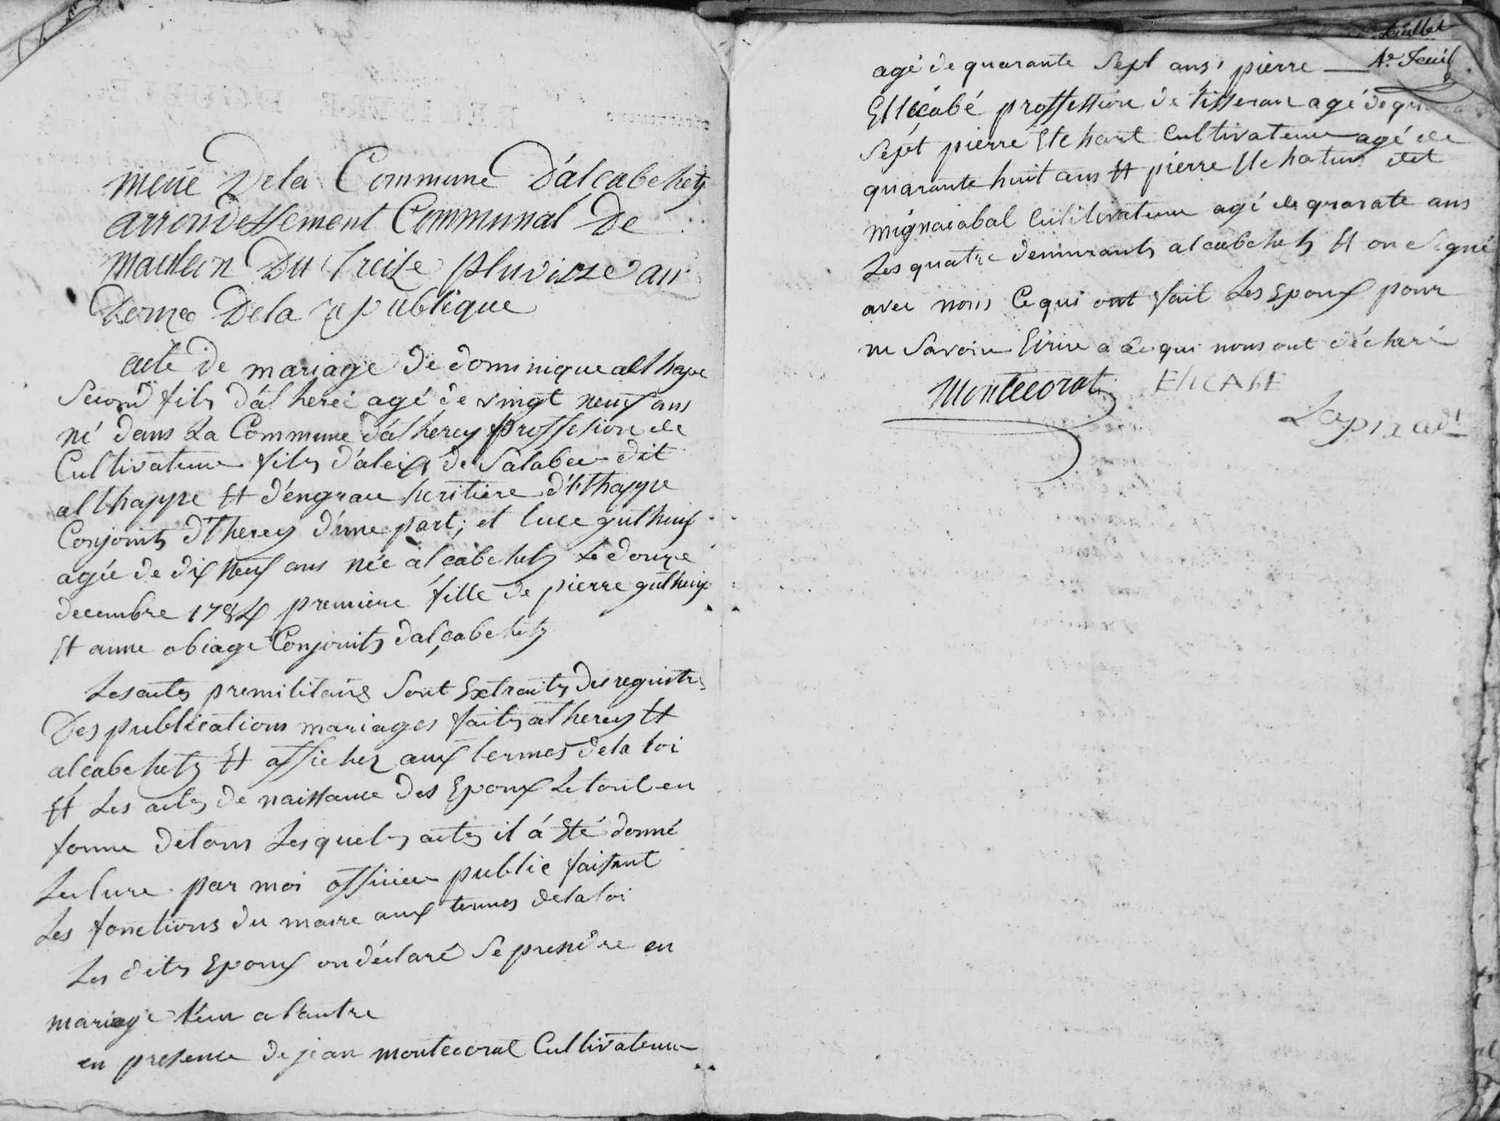 merie Dela Commune D'alcabehety
arrondissement Communal De
mauleon Du treize pluviose an
Dela republique
acte De mariage De dominique althape
Second fils d'alherei agé de vingt neuf ans
né dans La Commune d'alherey proffesion de
Cultivateur fils d'aleix de Salaber dit
althappe Et d'engrace heritiere d'Ethappe
Conjoints d'Iherey d'une part, et luce guilheux
agée de dix neuf ans née alcabehety Le douze
decembre 1784 premiere fille de pierre guilheux
Et anne abiage Conjoints d'alçabehety
Les actes premilitaires Sont Extraits des registres
Des publications mariages faites a therey Et
alcabehety Et affichez aux termes dela loi
Et Les actes de naissance des Epoux Le tout en
forme De tous Lesquels actes il á Eté donné
Lecture par moi officier public faisant
Les fonctions du maire aux termes dela loi
Les dits Epoux on déclaré Se prendre en
mariage L'un a L'autre
en presence de jean montcorat Cultivateur
Juillet
4e Feuil
agé de quarante Sept ans, pierre
Eliçabé proffession de tisseran agé de
Sept pierre Etchart Cultivateur agé de
quarante huit ans Et pierre Etchatun dit
mignaiabal Cultivateur agé de quarate ans
Les quatre demeurants alcabehety Et on Signé
avec nous Ce qui ont fait Les Epoux pour
ne Savoir Ecrire a Ce qui nous ont déclaré
Montcorat
ELICABE